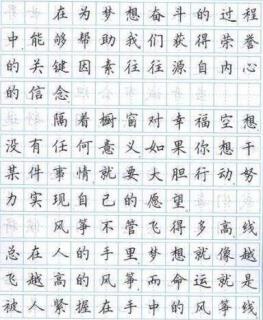 在为梦想奋斗的过程
中能够帮助我们获得荣誉
的关键因素往往源自内心
的信念
隔着橱窗对幸福空想
没有任何意义如果你想干
某件事情就要大胆行动努
力实现自己的愿望
风筝不管飞得多高线
总在人的手里梦想就像越
飞越高的风筝而命运就是
被人紧握在手中的风筝线